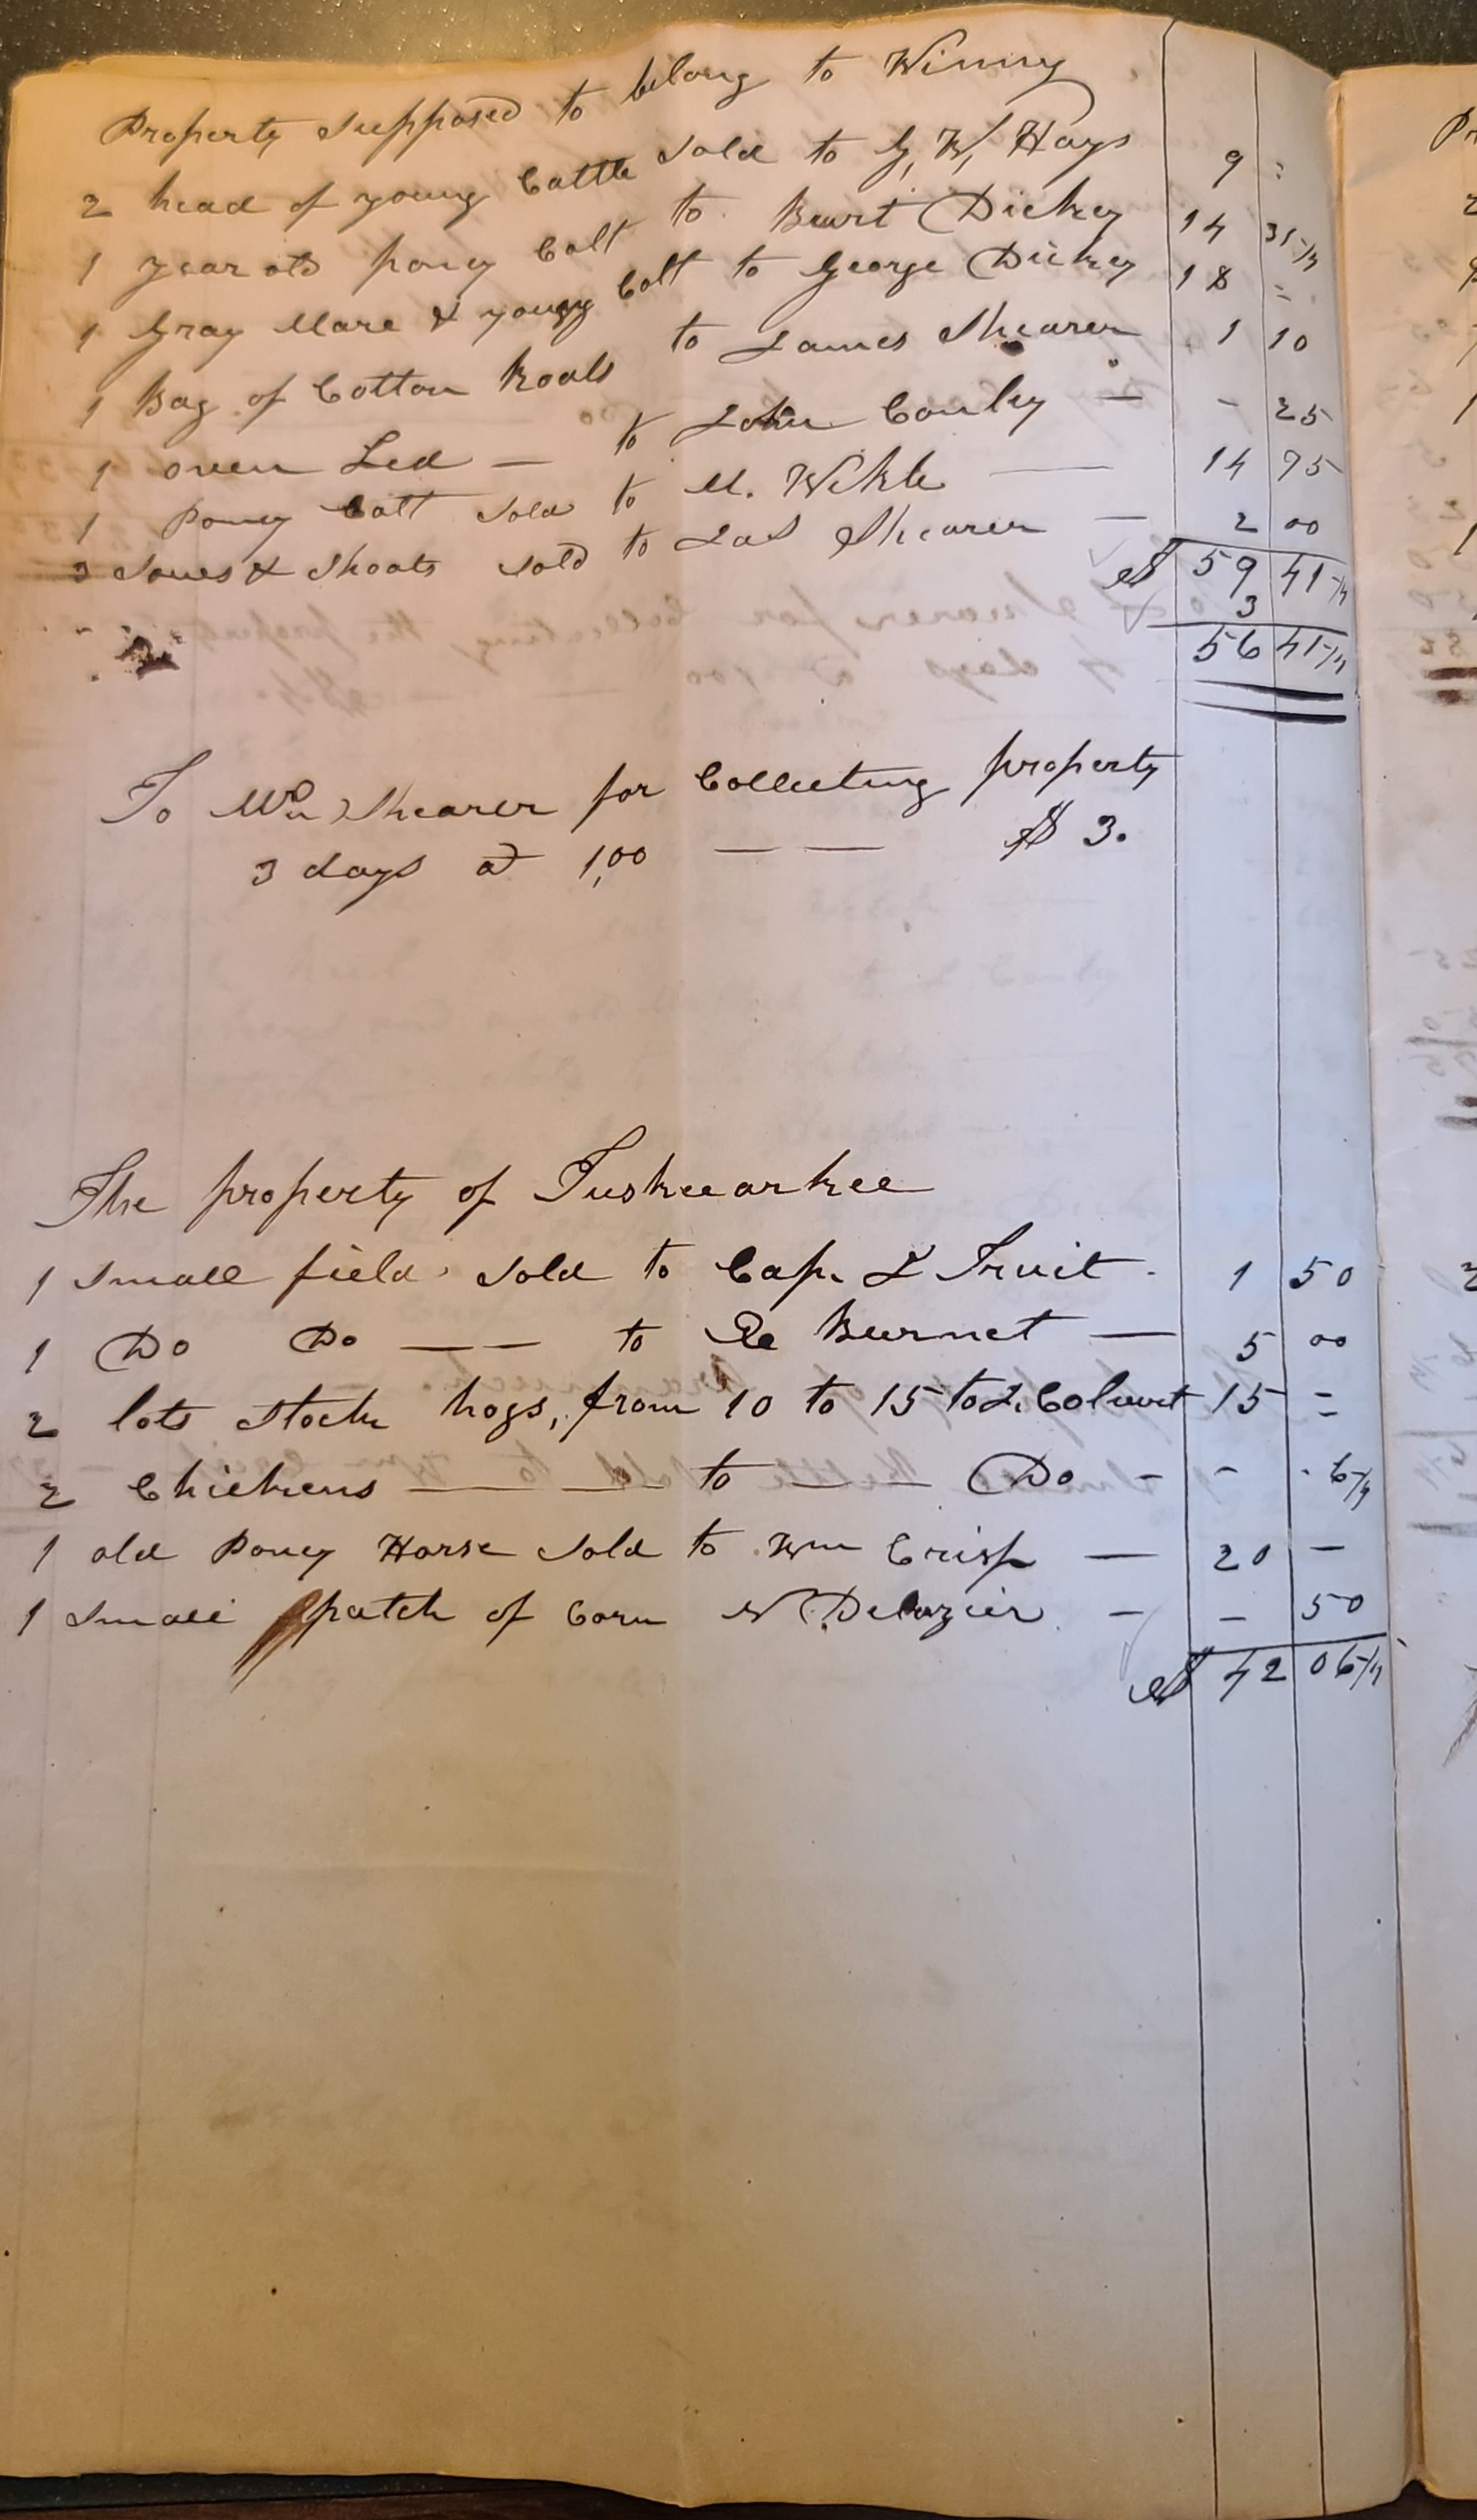 Property supposed to belong to Winny
2 head of young Cattle sold to G, W, Hays 9 =
1 year old poney Colt to Burt Dickey 14 31 1/4
1 Gray Mare & young Colt to George Dickey 18 =
1 Bag of Cotton Roals to James Shearer 1 10
1 oven Led — to John Conley — - 25
1 Poney Colt sold to M. Wikle — 14 75
3 Sows & Shoats sold to Jas Shearer — 2 00
$ 59 41 1/4
3
56 41 1/4
To Wm Shearer for Collecting property
3 days at 1,00 — — $ 3.
The property of Tuskeearkee
1 small field sold to Cap. Truit - 1 50
1 Do Do — — to Burnet — 5 00
2 lots stock hogs, from 10 to 15 to Colvert 15 =
2 Chickens — — to — Do - - 6 1/4
1 old Poney Horse sold to Wm Crisp — 20 —
1 Small patch of Corn Delozier — — 50
$ 42 06 1/4